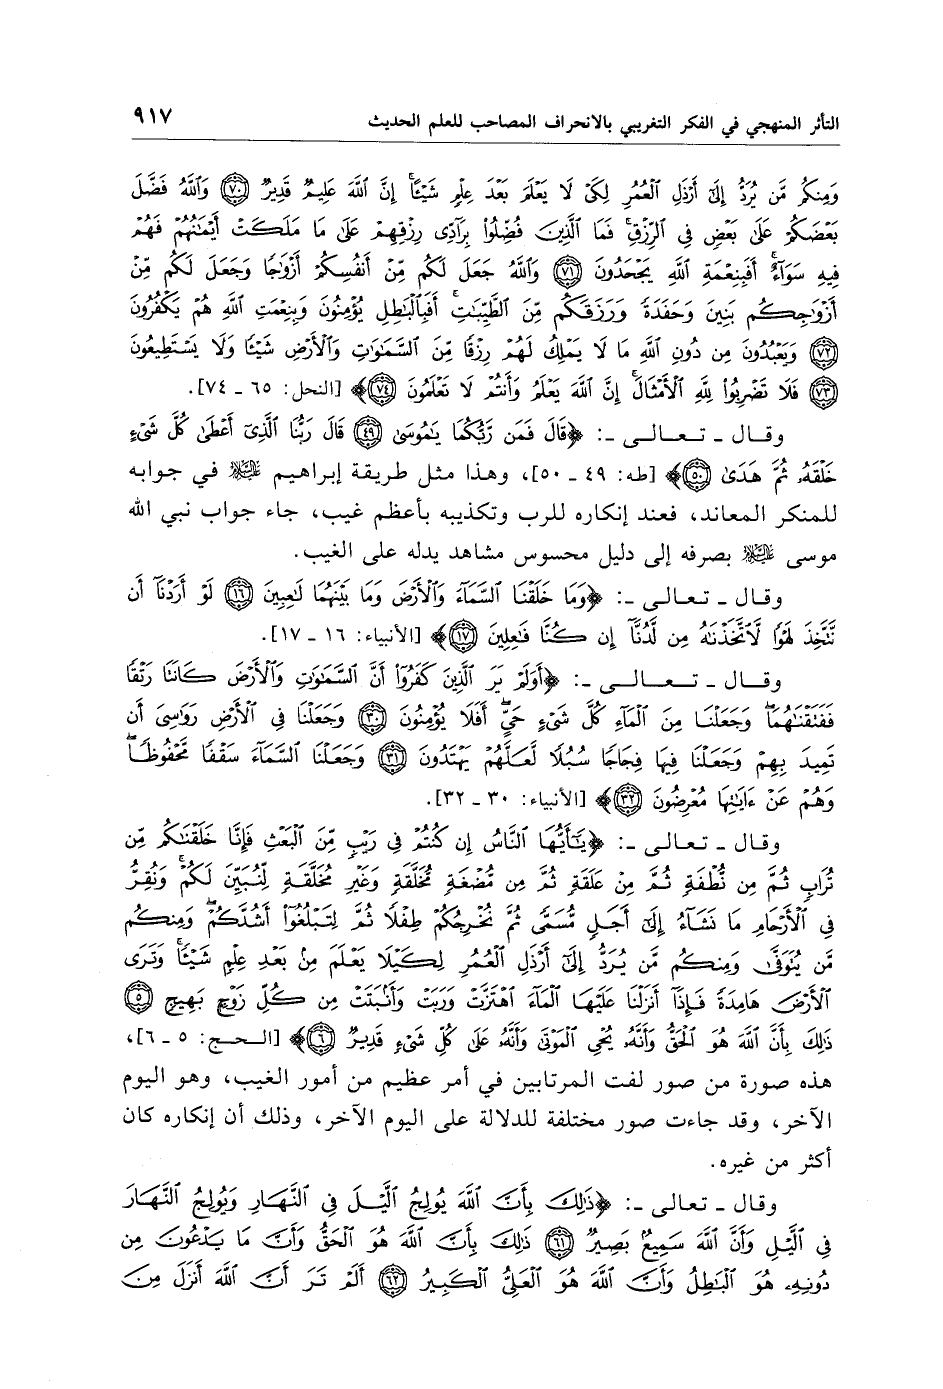 التأثر المنهجي في الفكر التغريبي بالانحراف المصاحب للعلم الحديث ٩١٧
وَمِنكُم مَّن يُرَدُّ إِلَىٰٓ أَرْذَلِ ٱلْعُمُرِ لِكَىْ لَا يَعْلَمَ بَعْدَ عِلْمٍ شَيْـًٔا ۚ إِنَّ ٱللَّهَ عَلِيمٌ قَدِيرٌ ﴿٧٠﴾ وَٱللَّهُ فَضَّلَ
بَعْضَكُمْ عَلَىٰ بَعْضٍ فِى ٱلرِّزْقِ ۚ فَمَا ٱلَّذِينَ فُضِّلُوا۟ بِرَآدِّى رِزْقِهِمْ عَلَىٰ مَا مَلَكَتْ أَيْمَـٰنُهُمْ فَهُمْ
فِيهِ سَوَآءٌ ۚ أَفَبِنِعْمَةِ ٱللَّهِ يَجْحَدُونَ ﴿٧١﴾ وَٱللَّهُ جَعَلَ لَكُم مِّنْ أَنفُسِكُمْ أَزْوَٰجًا وَجَعَلَ لَكُم مِّنْ
أَزْوَٰجِكُم بَنِينَ وَحَفَدَةً وَرَزَقَكُم مِّنَ ٱلطَّيِّبَـٰتِ ۚ أَفَبِٱلْبَـٰطِلِ يُؤْمِنُونَ وَبِنِعْمَتِ ٱللَّهِ هُمْ يَكْفُرُونَ
﴿٧٢﴾ وَيَعْبُدُونَ مِن دُونِ ٱللَّهِ مَا لَا يَمْلِكُ لَهُمْ رِزْقًا مِّنَ ٱلسَّمَـٰوَٰتِ وَٱلْأَرْضِ شَيْـًٔا وَلَا يَسْتَطِيعُونَ
﴿٧٣﴾ فَلَا تَضْرِبُوا۟ لِلَّهِ ٱلْأَمْثَالَ ۚ إِنَّ ٱللَّهَ يَعْلَمُ وَأَنتُمْ لَا تَعْلَمُونَ ﴿٧٤﴾﴾ [النحل: ٦٥ ـ ٧٤].
وقـال ـ تـعـالـى ـ: ﴿قَالَ فَمَن رَّبُّكُمَا يَـٰمُوسَىٰ ﴿٤٩﴾ قَالَ رَبُّنَا ٱلَّذِىٓ أَعْطَىٰ كُلَّ شَىْءٍ
خَلْقَهُۥ ثُمَّ هَدَىٰ ﴿٥٠﴾﴾ [طه: ٤٩ ـ ٥٠]، وهذا مثل طريقة إبراهيم عليه السلام في جوابه
للمنكر المعاند، فعند إنكاره للرب وتكذيبه بأعظم غيب، جاء جواب نبي الله
موسى عليه السلام بصرفه إلى دليل محسوس مشاهد يدله على الغيب.
وقـال ـ تـعـالـى ـ: ﴿وَمَا خَلَقْنَا ٱلسَّمَآءَ وَٱلْأَرْضَ وَمَا بَيْنَهُمَا لَـٰعِبِينَ ﴿١٦﴾ لَوْ أَرَدْنَآ أَن
نَّتَّخِذَ لَهْوًا لَّٱتَّخَذْنَـٰهُ مِن لَّدُنَّآ إِن كُنَّا فَـٰعِلِينَ ﴿١٧﴾﴾ [الأنبياء: ١٦ ـ ١٧].
وقـال ـ تـعـالـى ـ: ﴿أَوَلَمْ يَرَ ٱلَّذِينَ كَفَرُوٓا۟ أَنَّ ٱلسَّمَـٰوَٰتِ وَٱلْأَرْضَ كَانَتَا رَتْقًا
فَفَتَقْنَـٰهُمَا ۖ وَجَعَلْنَا مِنَ ٱلْمَآءِ كُلَّ شَىْءٍ حَىٍّ ۖ أَفَلَا يُؤْمِنُونَ ﴿٣٠﴾ وَجَعَلْنَا فِى ٱلْأَرْضِ رَوَٰسِىَ أَن
تَمِيدَ بِهِمْ وَجَعَلْنَا فِيهَا فِجَاجًا سُبُلًا لَّعَلَّهُمْ يَهْتَدُونَ ﴿٣١﴾ وَجَعَلْنَا ٱلسَّمَآءَ سَقْفًا مَّحْفُوظًا ۖ
وَهُمْ عَنْ ءَايَـٰتِهَا مُعْرِضُونَ ﴿٣٢﴾﴾ [الأنبياء: ٣٠ ـ ٣٢].
وقـال ـ تـعـالـى ـ: ﴿يَـٰٓأَيُّهَا ٱلنَّاسُ إِن كُنتُمْ فِى رَيْبٍ مِّنَ ٱلْبَعْثِ فَإِنَّا خَلَقْنَـٰكُم مِّن
تُرَابٍ ثُمَّ مِن نُّطْفَةٍ ثُمَّ مِنْ عَلَقَةٍ ثُمَّ مِن مُّضْغَةٍ مُّخَلَّقَةٍ وَغَيْرِ مُخَلَّقَةٍ لِّنُبَيِّنَ لَكُمْ ۚ وَنُقِرُّ
فِى ٱلْأَرْحَامِ مَا نَشَآءُ إِلَىٰٓ أَجَلٍ مُّسَمًّى ثُمَّ نُخْرِجُكُمْ طِفْلًا ثُمَّ لِتَبْلُغُوٓا۟ أَشُدَّكُمْ ۖ وَمِنكُم
مَّن يُتَوَفَّىٰ وَمِنكُم مَّن يُرَدُّ إِلَىٰٓ أَرْذَلِ ٱلْعُمُرِ لِكَيْلَا يَعْلَمَ مِنۢ بَعْدِ عِلْمٍ شَيْـًٔا ۚ وَتَرَى
ٱلْأَرْضَ هَامِدَةً فَإِذَآ أَنزَلْنَا عَلَيْهَا ٱلْمَآءَ ٱهْتَزَّتْ وَرَبَتْ وَأَنۢبَتَتْ مِن كُلِّ زَوْجٍۭ بَهِيجٍ ﴿٥﴾
ذَٰلِكَ بِأَنَّ ٱللَّهَ هُوَ ٱلْحَقُّ وَأَنَّهُۥ يُحْىِ ٱلْمَوْتَىٰ وَأَنَّهُۥ عَلَىٰ كُلِّ شَىْءٍ قَدِيرٌ ﴿٦﴾﴾ [الـحـج: ٥ ـ ٦]،
هذه صورة من صور لفت المرتابين في أمر عظيم من أمور الغيب، وهو اليوم
الآخر، وقد جاءت صور مختلفة للدلالة على اليوم الآخر، وذلك أن إنكاره كان
أكثر من غيره.
وقال ـ تعالى ـ: ﴿ذَٰلِكَ بِأَنَّ ٱللَّهَ يُولِجُ ٱلَّيْلَ فِى ٱلنَّهَارِ وَيُولِجُ ٱلنَّهَارَ
فِى ٱلَّيْلِ وَأَنَّ ٱللَّهَ سَمِيعٌۢ بَصِيرٌ ﴿٦١﴾ ذَٰلِكَ بِأَنَّ ٱللَّهَ هُوَ ٱلْحَقُّ وَأَنَّ مَا يَدْعُونَ مِن
دُونِهِۦ هُوَ ٱلْبَـٰطِلُ وَأَنَّ ٱللَّهَ هُوَ ٱلْعَلِىُّ ٱلْكَبِيرُ ﴿٦٢﴾ أَلَمْ تَرَ أَنَّ ٱللَّهَ أَنزَلَ مِنَ